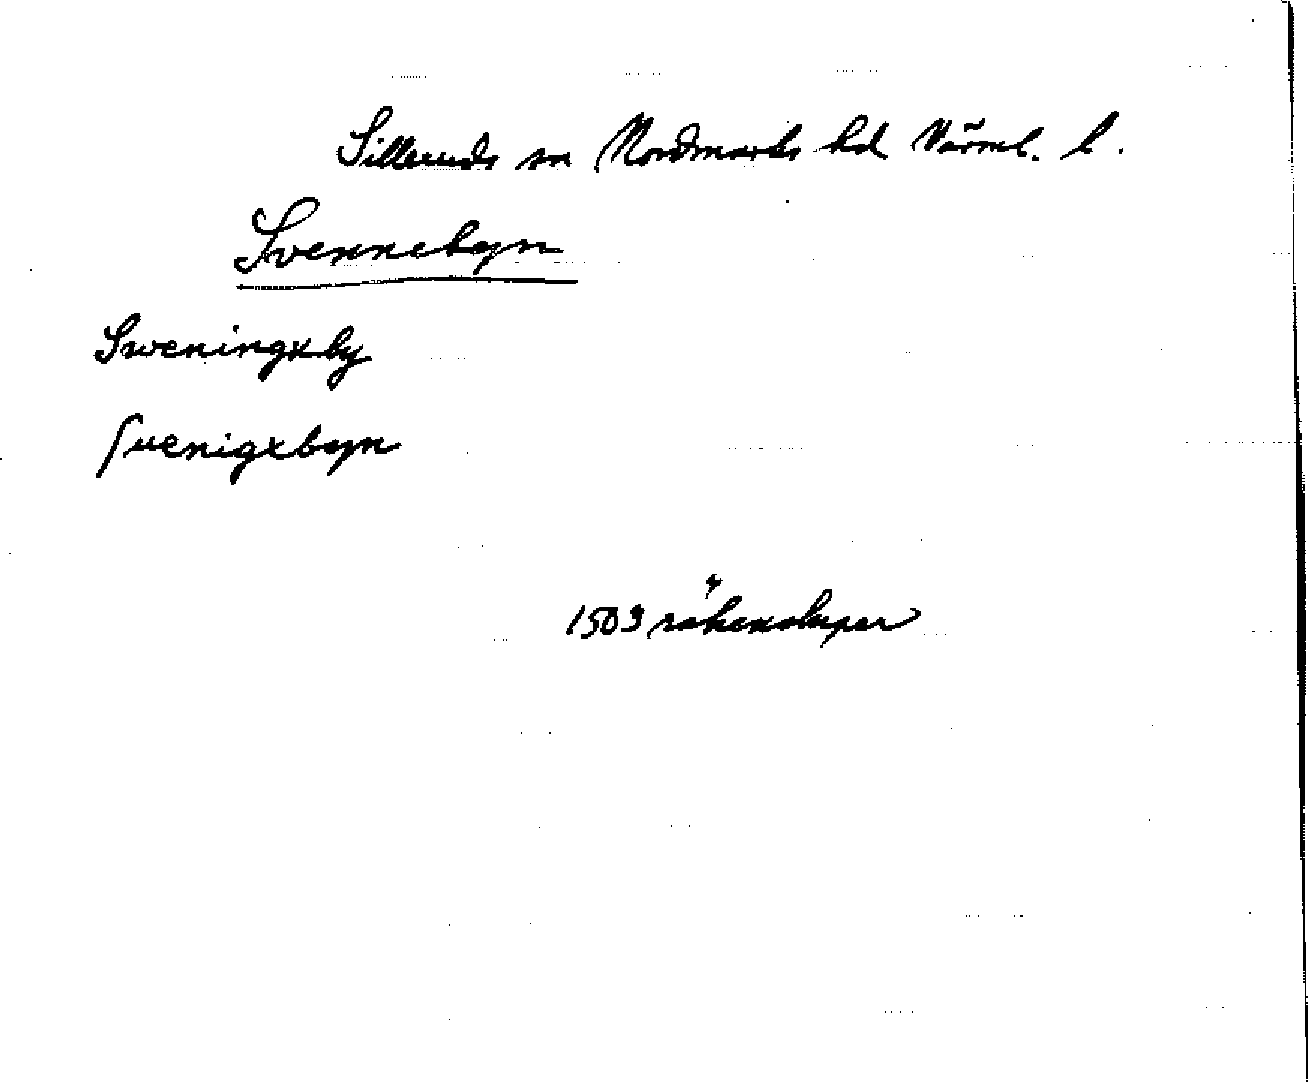 Silleruds sn Nordmarks hd Värml. l.
Svennebyn
Sweningxby
Suenigxbyn
1503 räkenskaper